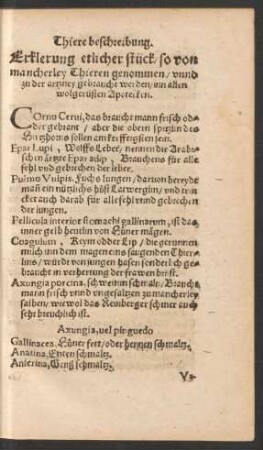 Thiere beschreibung.
Erklerung etlicher stück / so von
mancherley Thieren genommen / vnnd
zu der artzney gebraucht werden / inn allen
wolgerüsten Apotecken.
Cornu Cerui, das braucht mann frisch od-
der gebrant / aber die obern spitzlin des
Hirtzhorns sollen am krefftigsten sein.
Epar Lupi, Wolffs Leber, nennen die Arabi-
schen ärtzte Epar adip, Brauchens für alle
fehl vnd gebrechen der leber.
Pulmo Vulpis. Fuchs lungen / daruon bereyde
mañ ein nützlichs hüst Latwerglin / vnd trü-
cket auch darab für alle fehl vnnd gebrechen
der lungen.
Pellicula interior stomachi gallinarum, ist das
inner gelb heutlin von Hüner mägen.
Coagulum, Reym odder Lip / die gerunnen
milch inn dem magen eins saugenden Thier-
lins / würdt von jungen hasen sonderlich ge-
braucht in verherung der frawen brüst.
Axungia porcina, schweinin schmaltz / Braucht
mann frisch vnnd vngesaltzen zu mancherley
salben / wie wol das Reuberger schmer auch
sehr breuchlich ist.
Axungia, vel pinguedo
Gallinacea, Hüner fett / oder hennen schmaltz.
Anatina, Enten schmaltz.
Anserina, Genß schmaltz.